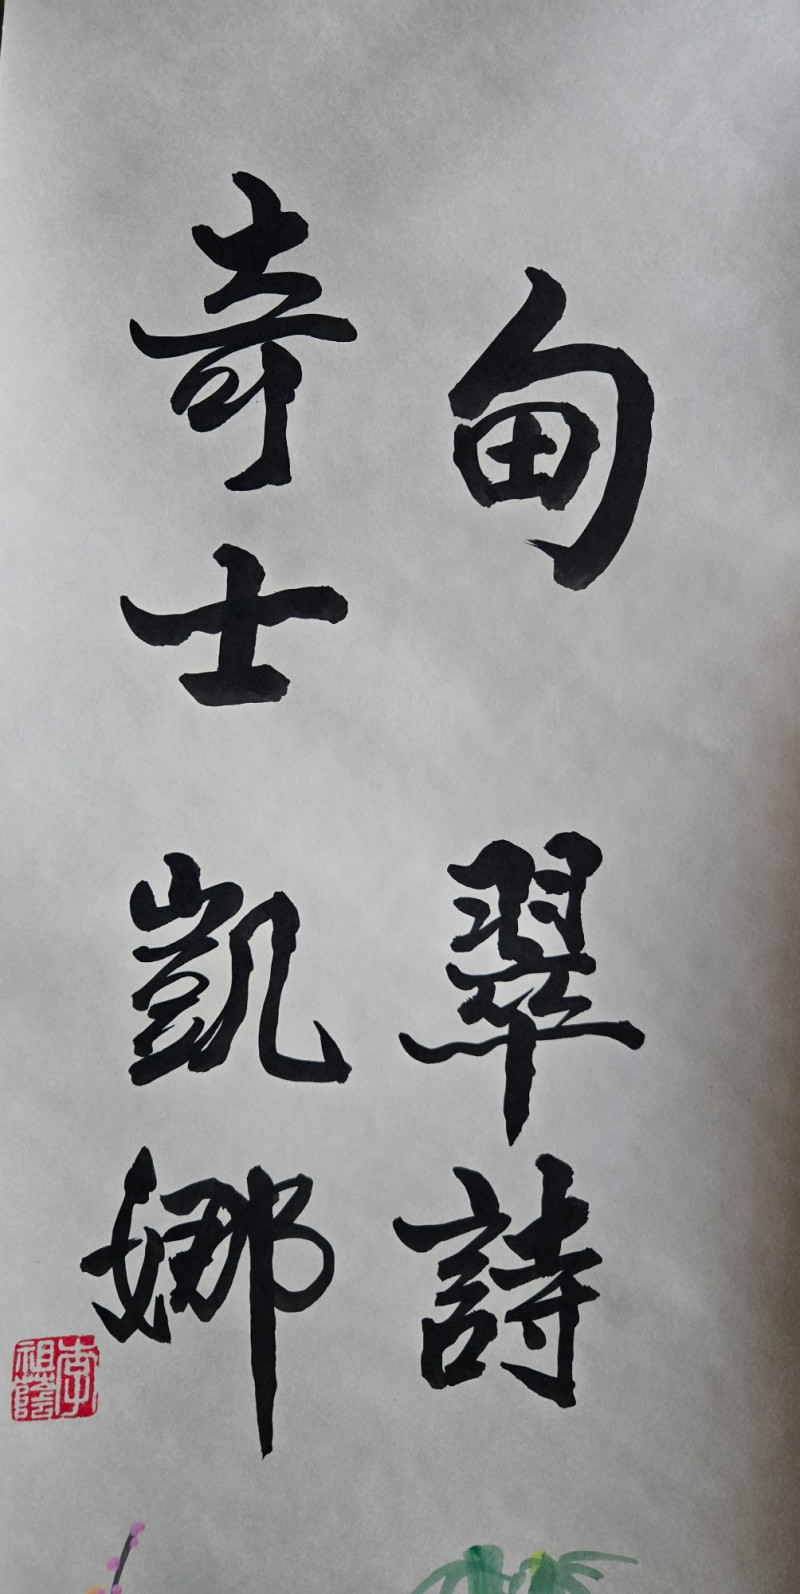 甸 翠詩
奇士 凱娜
李祖蔭